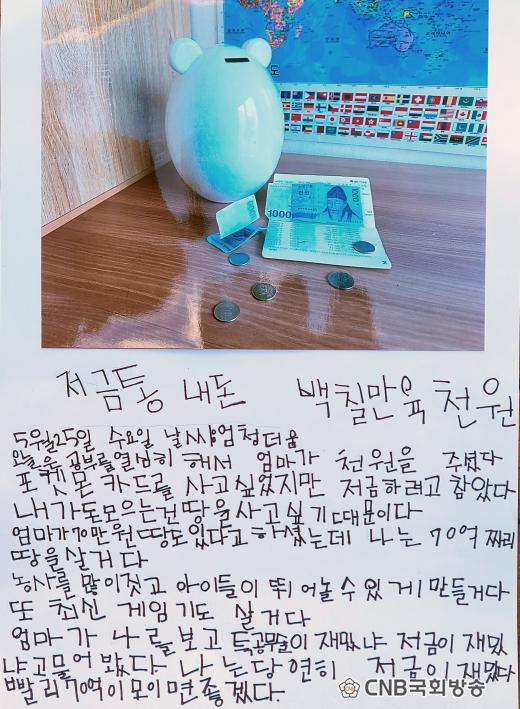 1000
천원
1000
저금통 내돈 백칠만육천원
5월25일 수요일 날씨엄청더움
오늘은 공부를열심히 해서 엄마가 천원을 주셨다
포켓몬 카드를 사고싶었지만 저금하려고 참았다
내가도모으는건땅을사고싶기때문이다
엄마가70만원땅도있다고하셨는데 나는 70억짜리
땅을살거다
농사를많이짓고 아이들이 뛰어놀수있게만들거다
또 최신 게임기도 살거다
엄마가 나를보고 특공무술이재밌냐 저금이재밌
냐고물어봤다 나는당연히 저금이재밌다
빨리70억이모이면좋겠다.
CNB국회방송